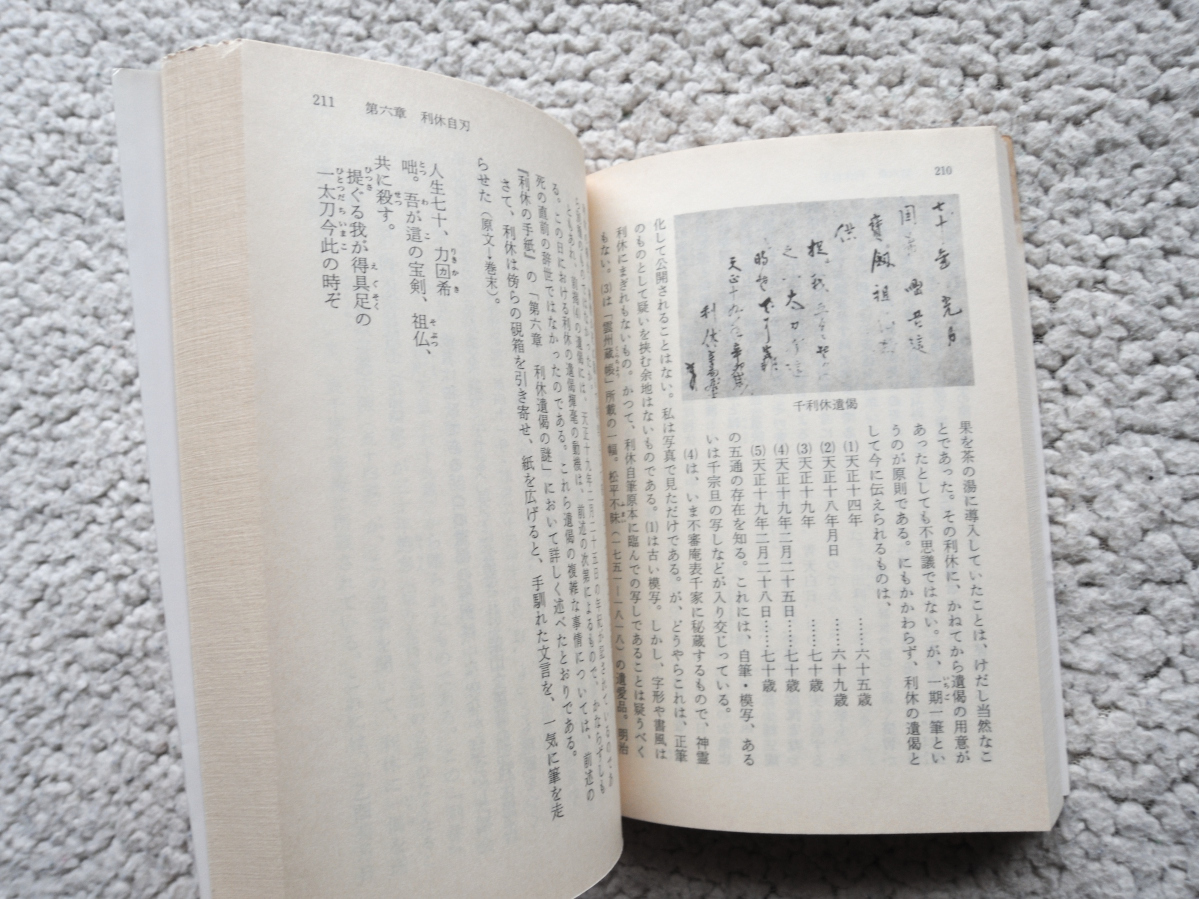 210
千利休遺偈
果を茶の湯に導入していたことは、けだし当然なこ
とであった。その利休に、かねてから遺偈の用意が
あったとしても不思議ではない。が、一期一筆とい
うのが原則である。にもかかわらず、利休の遺偈と
して今に伝えられるものは、
(1)天正十四年　……六十五歳
(2)天正十八年月日　……六十九歳
(3)天正十九年　……七十歳
(4)天正十九年二月二十五日……七十歳
(5)天正十九年二月二十八日……七十歳
の五通の存在を知る。これには、自筆・模写、ある
いは千宗旦の写しなどが入り交じっている。
(4)は、いま不審庵表千家に秘蔵するもので、神霊
化して公開されることはない。私は写真で見ただけである。が、どうやらこれは、正筆
のものとして疑いを挟む余地はないものである。(1)は古い模写。しかし、字形や書風は
利休にまぎれもないもの。かつて、利休自筆原本に臨んでの写しであることは疑うべく
もない。(3)は「雲州蔵帳」所載の一幅。松平不昧(一七五一—一八一八)の遺愛品。明治
211　第六章　利休自刃
ともあれ、前掲(4)の遺偈には、天正十九年二月二十五日の年紀が記されているのであ
る。この日における利休の遺偈揮毫の動機は、前述の次第によるもので、かならずしも
死の直前の辞世ではなかったのである。これら遺偈の複雑な事情については、前述の
『利休の手紙』の「第六章　利休遺偈の謎」において詳しく述べたとおりである。
さて、利休は傍らの硯箱を引き寄せ、紙を広げると、手馴れた文言を、一気に筆を走
らせた(原文→巻末)。
人生七十、力囲希
咄。吾が這の宝剣、祖仏、
共に殺す。
提ぐる我が得具足の
一太刀今此の時ぞ